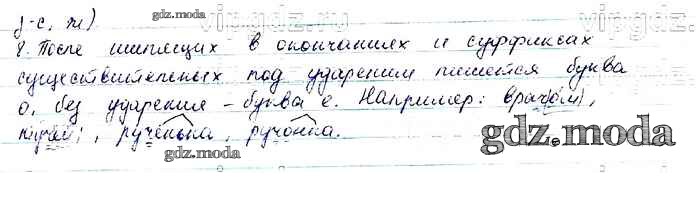 з-с, ж)
8. После шипящих в окончаниях и суффиксах
существительных под ударением пишется буква
о, без ударения – буква е. Например: врачом,
тучей, рученька, ручонка.
vipgdz.ru
vipgdz.ru
gdz.moda
gdz.moda
gdz.moda
gdz.moda